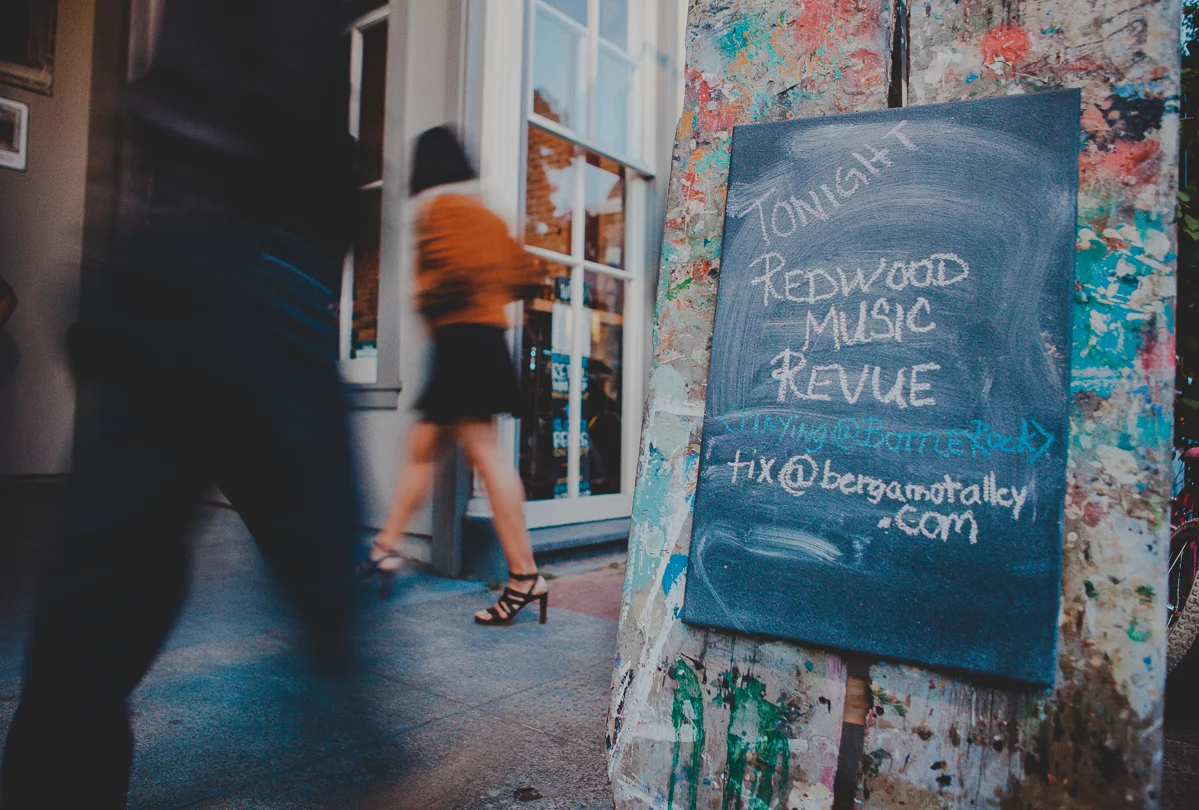 TONIGHT
REDWOOD
MUSIC
REVUE
<Playing@BottleRock>
tix@bergamotalley
.com